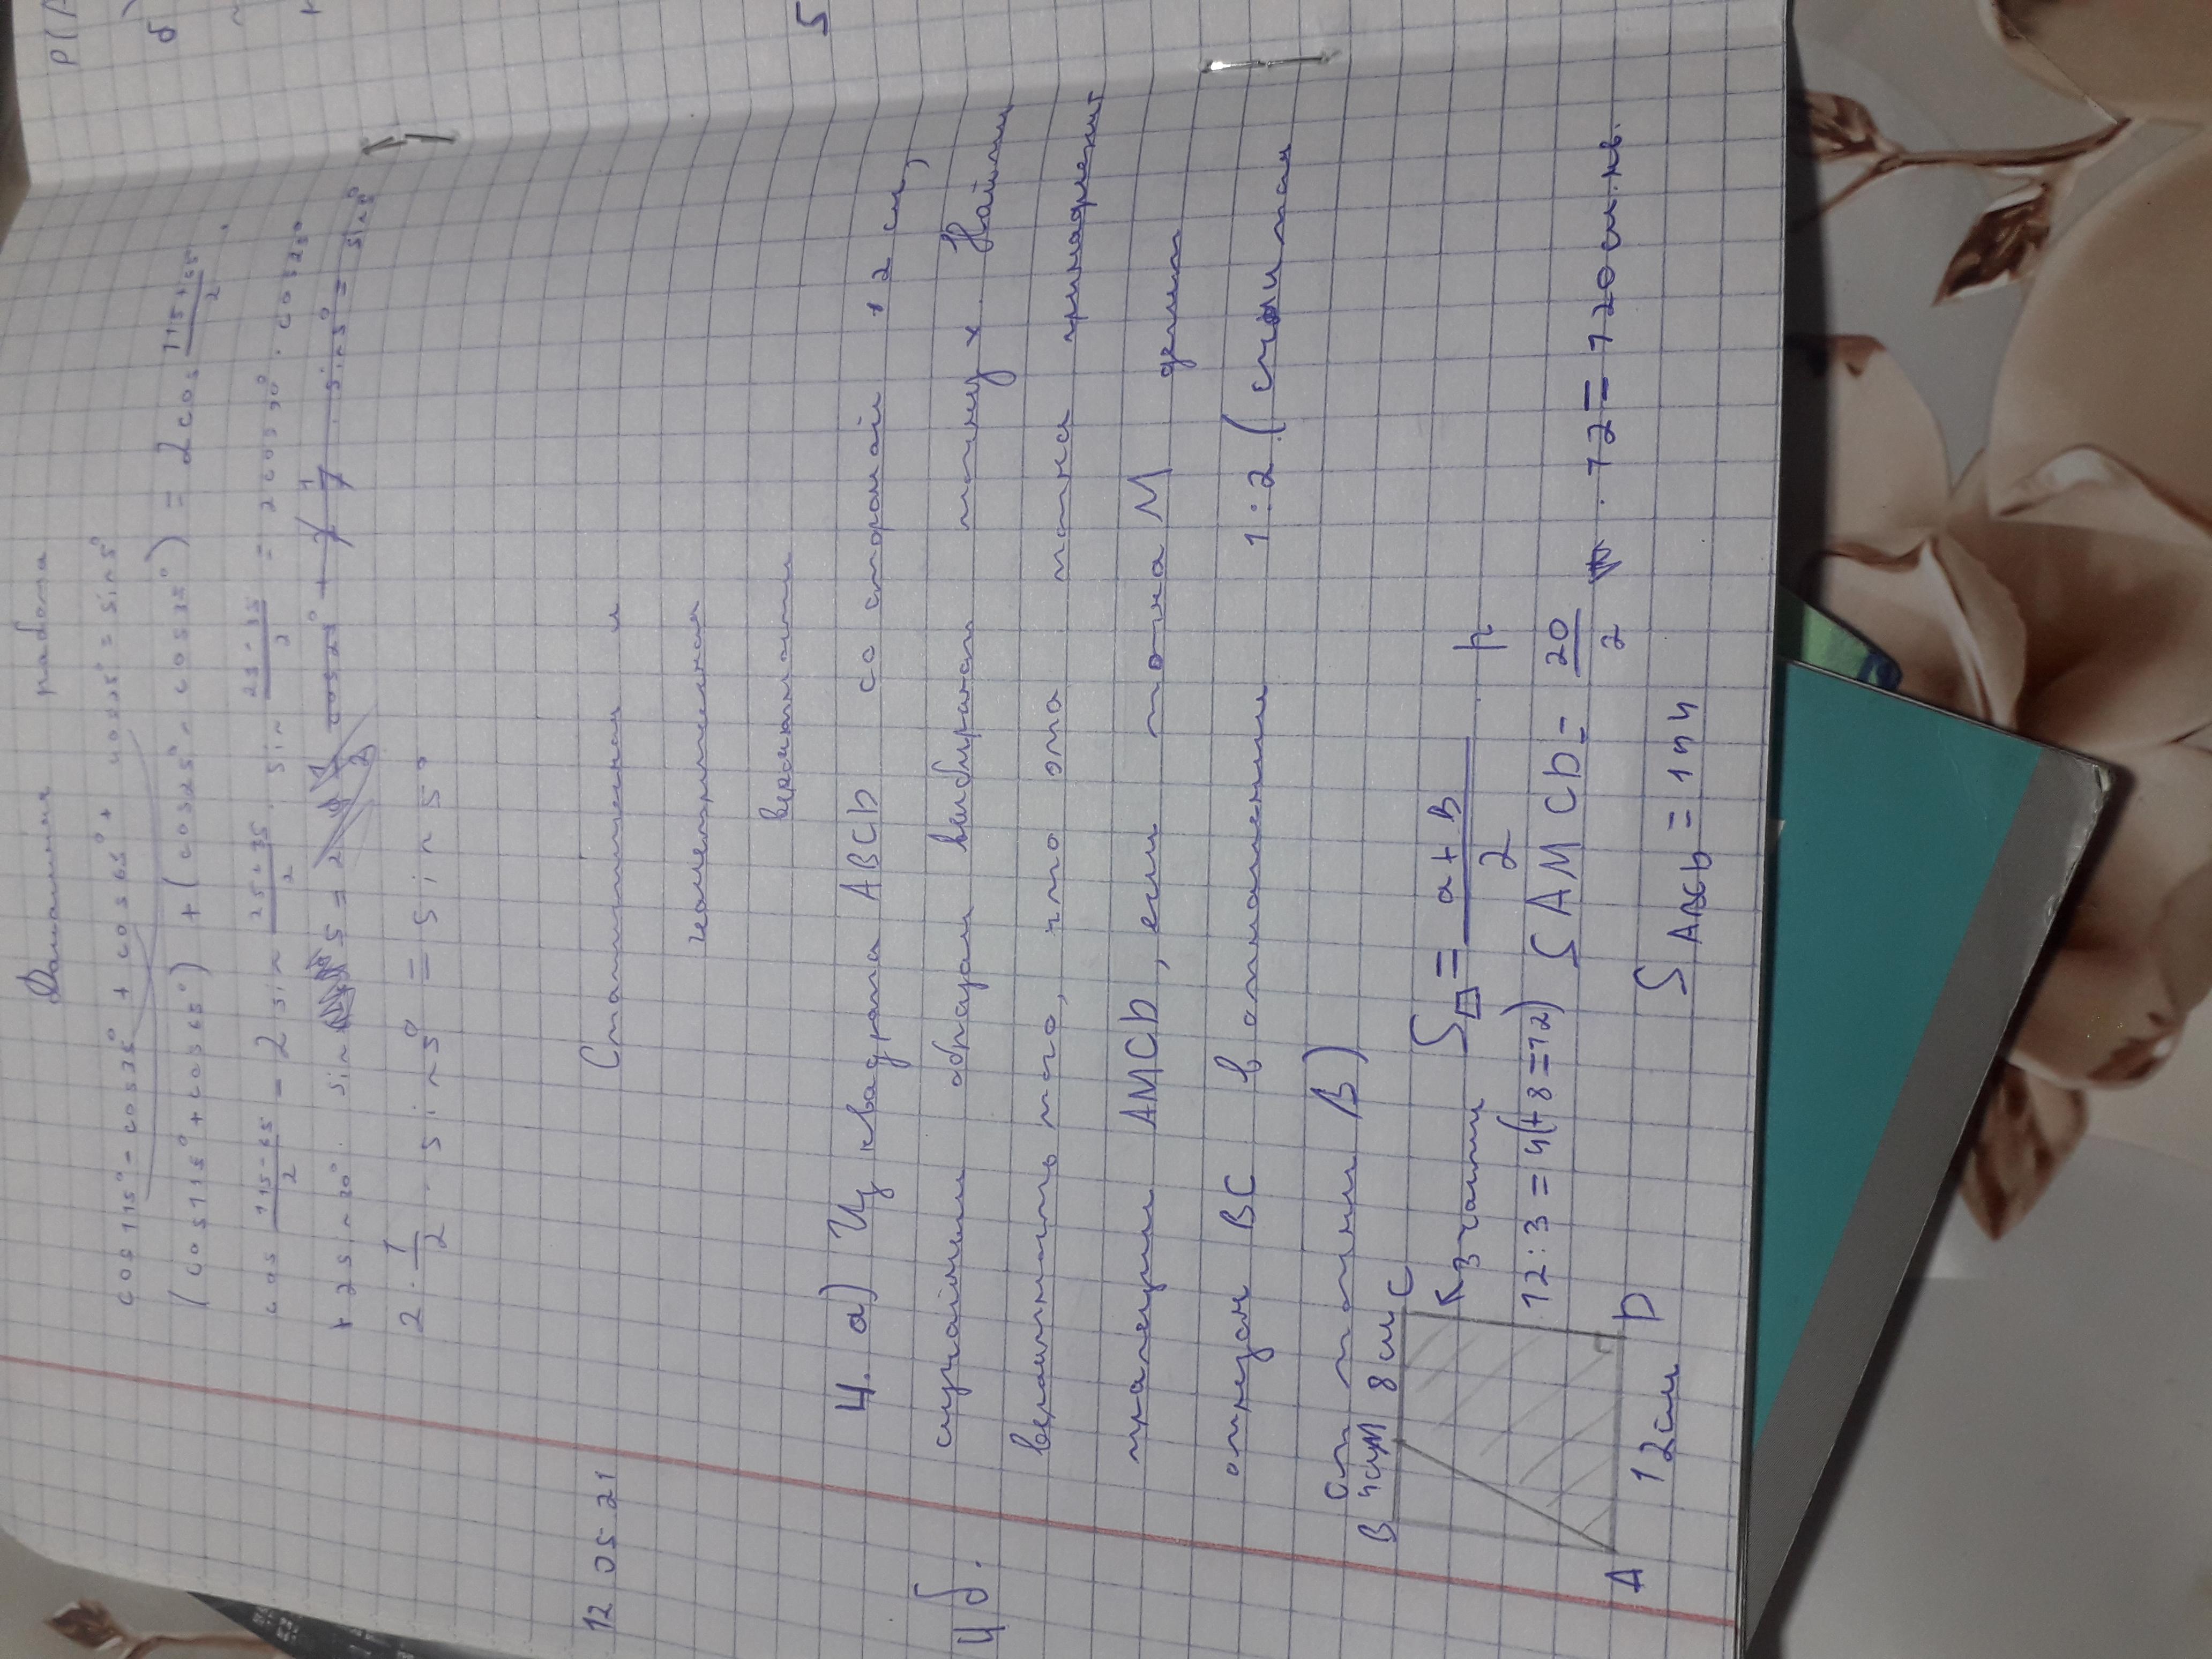 Домашняя работа
cos 115° - cos 35° + cos 65° + cos 25° = sin 5°
(cos 115° + cos 65°) + (cos 25° - cos 35°) = 2 cos (115+65)/2 ·
cos (115-65)/2 - 2 sin (25+35)/2 · sin (25-35)/2 = 2 cos 90° · cos 25°
+ 2 sin 30° · sin 5 = 2
2 · 1/2 · sin 5° = sin 5°
12 05 21
Статистическая и
геометрическая
вероятность
4. а) Из квадрата ABCD со стороной 12 см,
случайным образом выбирают точку x. Найти
4 б.
вероятность того, что эта точка принадлежит
трапеции AMCD, если точка M делит
отрезок BC в отношении 1:2 (считая
от точки B)
B 4см M 8см C
A 12см D
3 части S = (a+b)/2 · h
12:3 = 4 (+8=12) S AMCD = 20/2 · 12 = 120 см.кв.
S ABCD = 144
P(A
б)
5